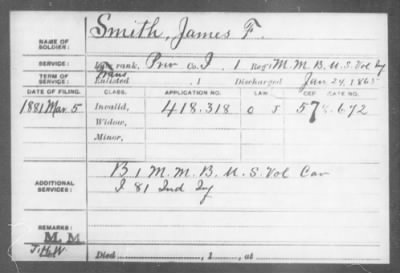 NAME OF SOLDIER: Smith, James F.
SERVICE: Late rank, Priv Co. I, 1 Reg't M. M. B. U. S. Vol Inf
TERM OF SERVICE: Trans
Enlisted , 1 Discharged Jan 24, 1865
DATE OF FILING. CLASS. APPLICATION NO. LAW. CERTIFICATE NO.
1881 Mar. 5 Invalid, 418.318
Widow,
Minor,
ADDITIONAL SERVICES: B 1 M. M. B. U. S. Vol Cav
I 81 Ind Inf
REMARKS: M. M.
Died , 1 , at